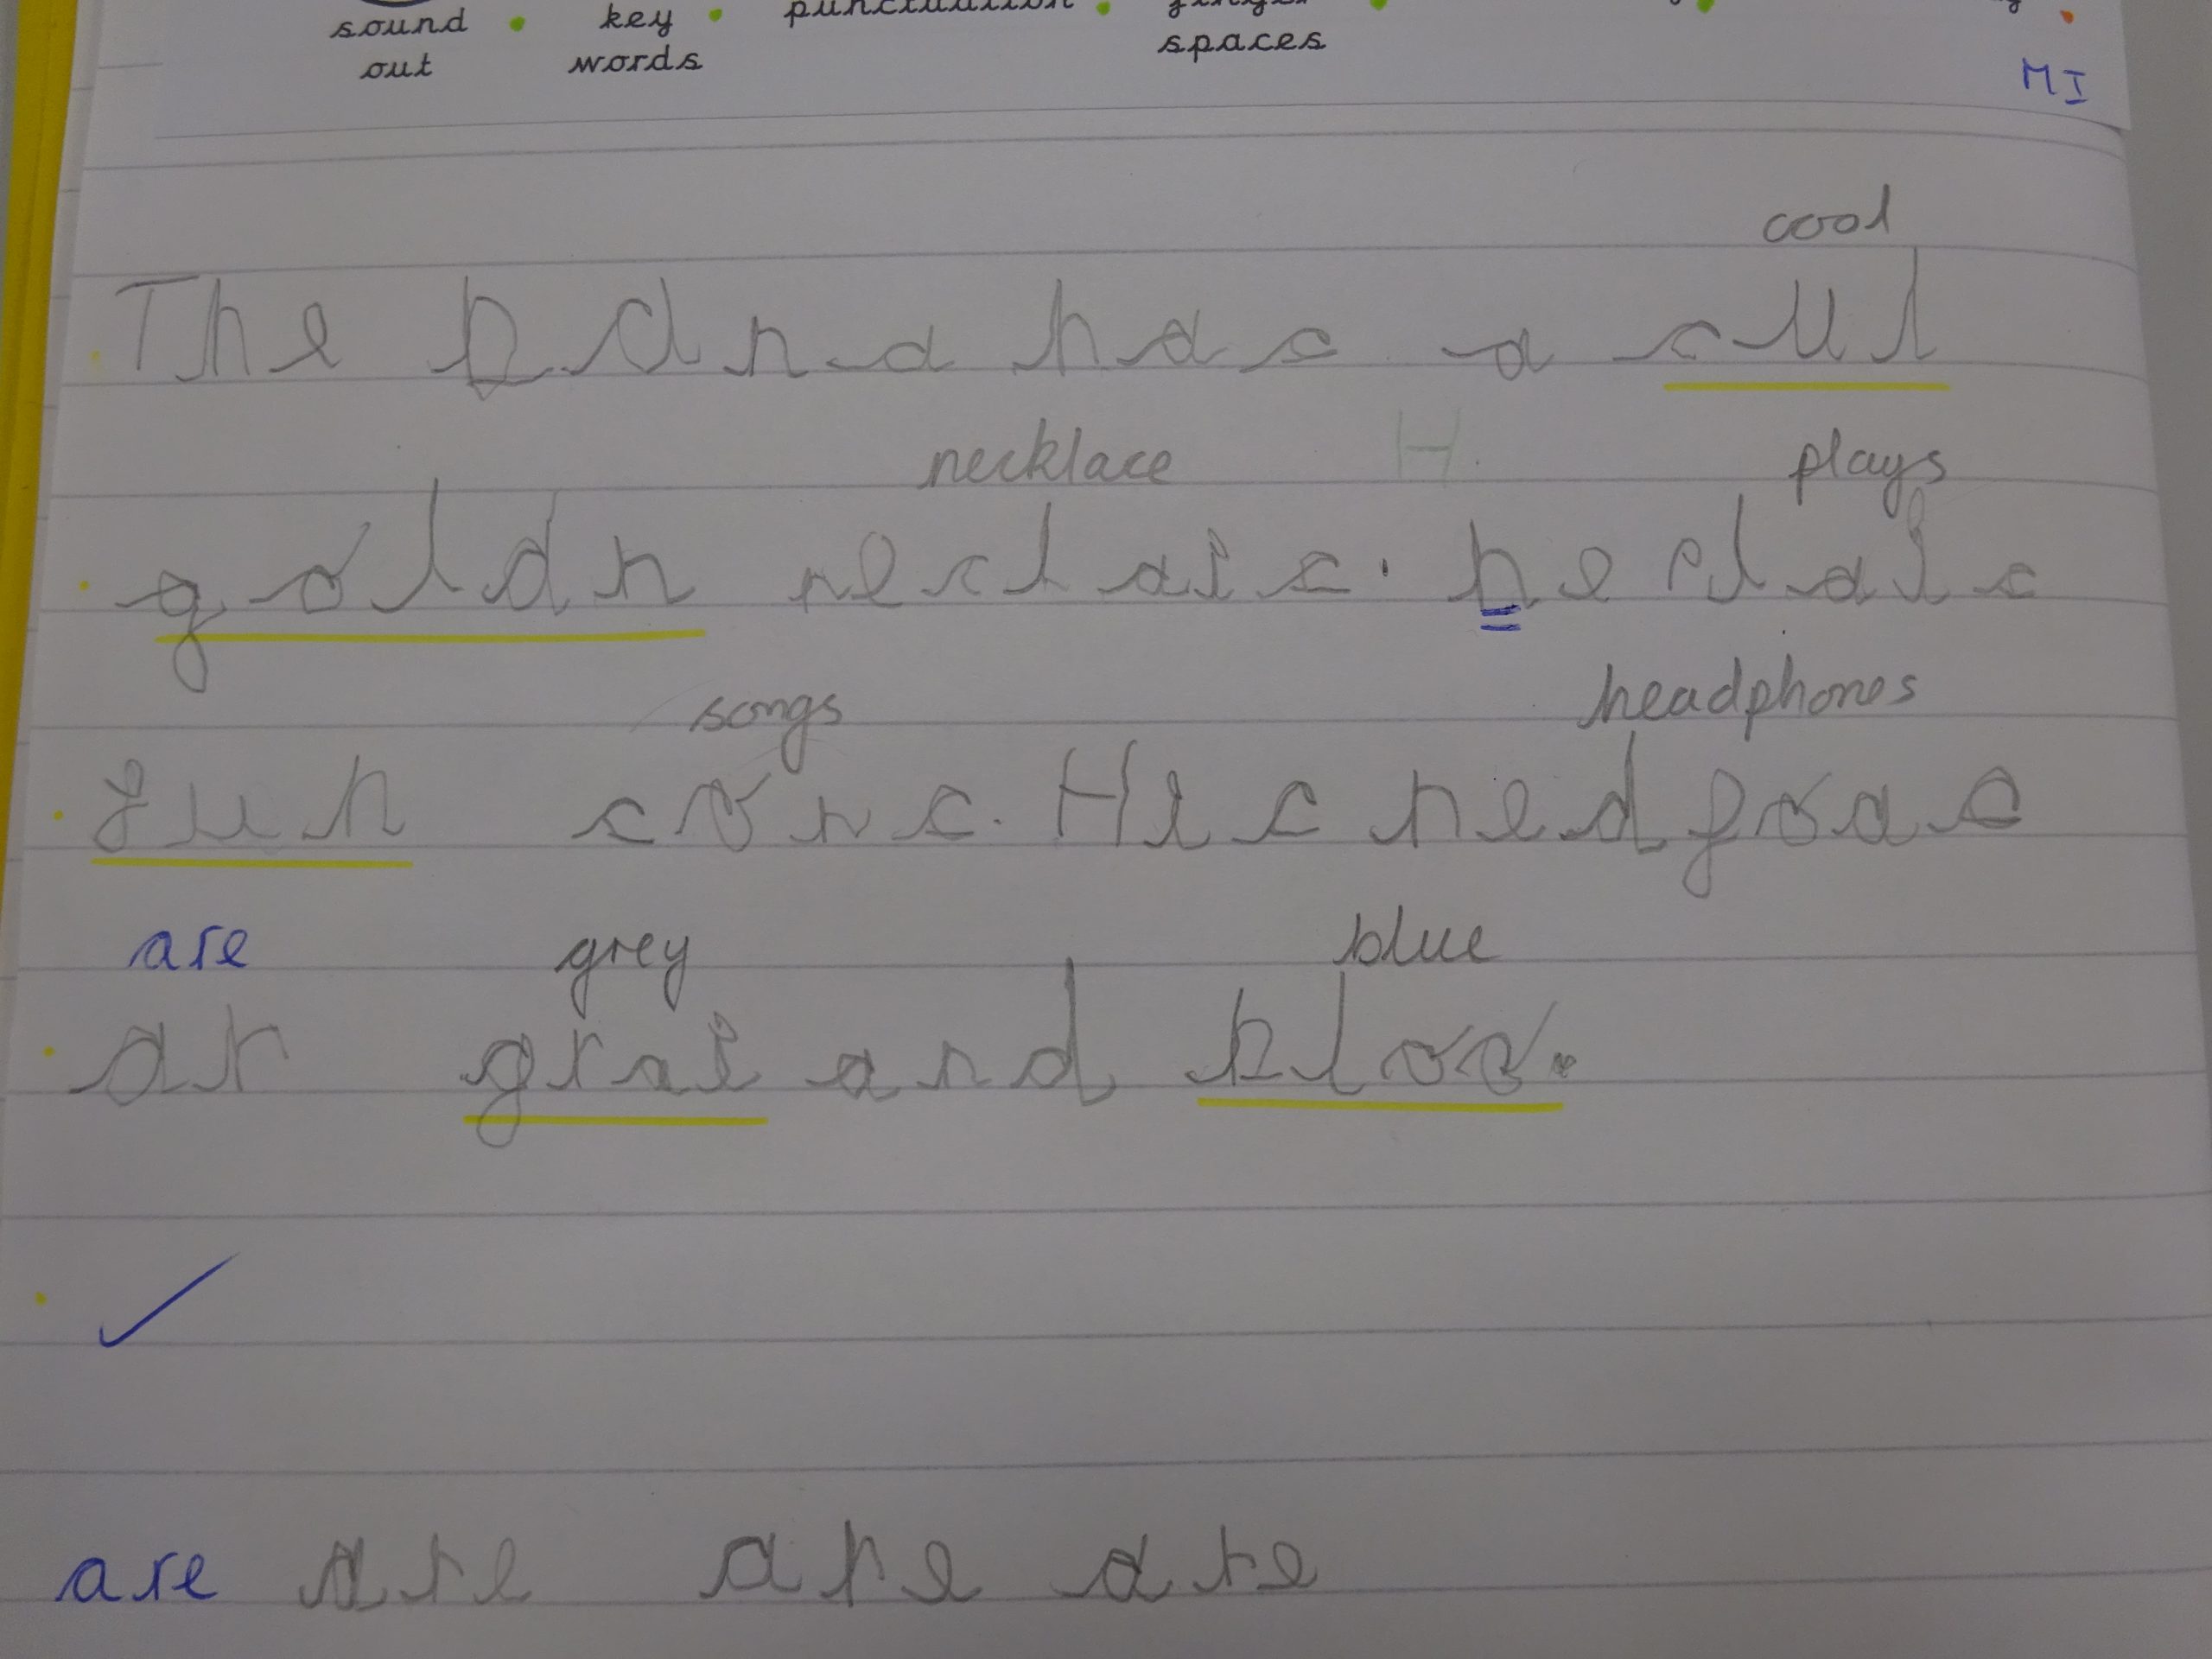 sound key punctuation finger
out words spaces
MI
cool
The panda has a cul
necklace H. plays
goldn neclais. he plais
songs headphones
fun sons. His hedfoas
are grey blue
ar grai and bloo.
are are are are